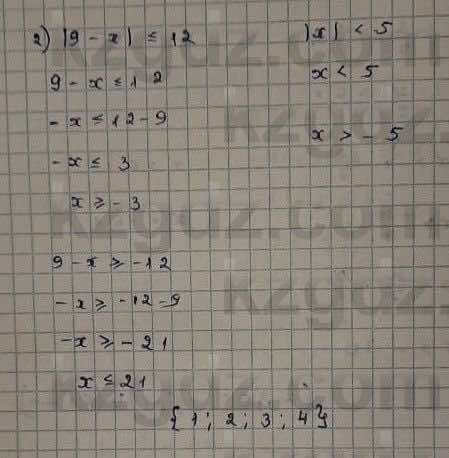 2) |9 - x| ≤ 12
9 - x ≤ 12
- x ≤ 12 - 9
- x ≤ 3
x ≥ - 3
9 - x ≥ -12
- x ≥ -12 - 9
- x ≥ - 21
x ≤ 21
|x| < 5
x < 5
x > - 5
{1; 2; 3; 4}
kzgdz.com
kzgdz.com
kzgdz.com
kzgdz.com
kzgdz.com